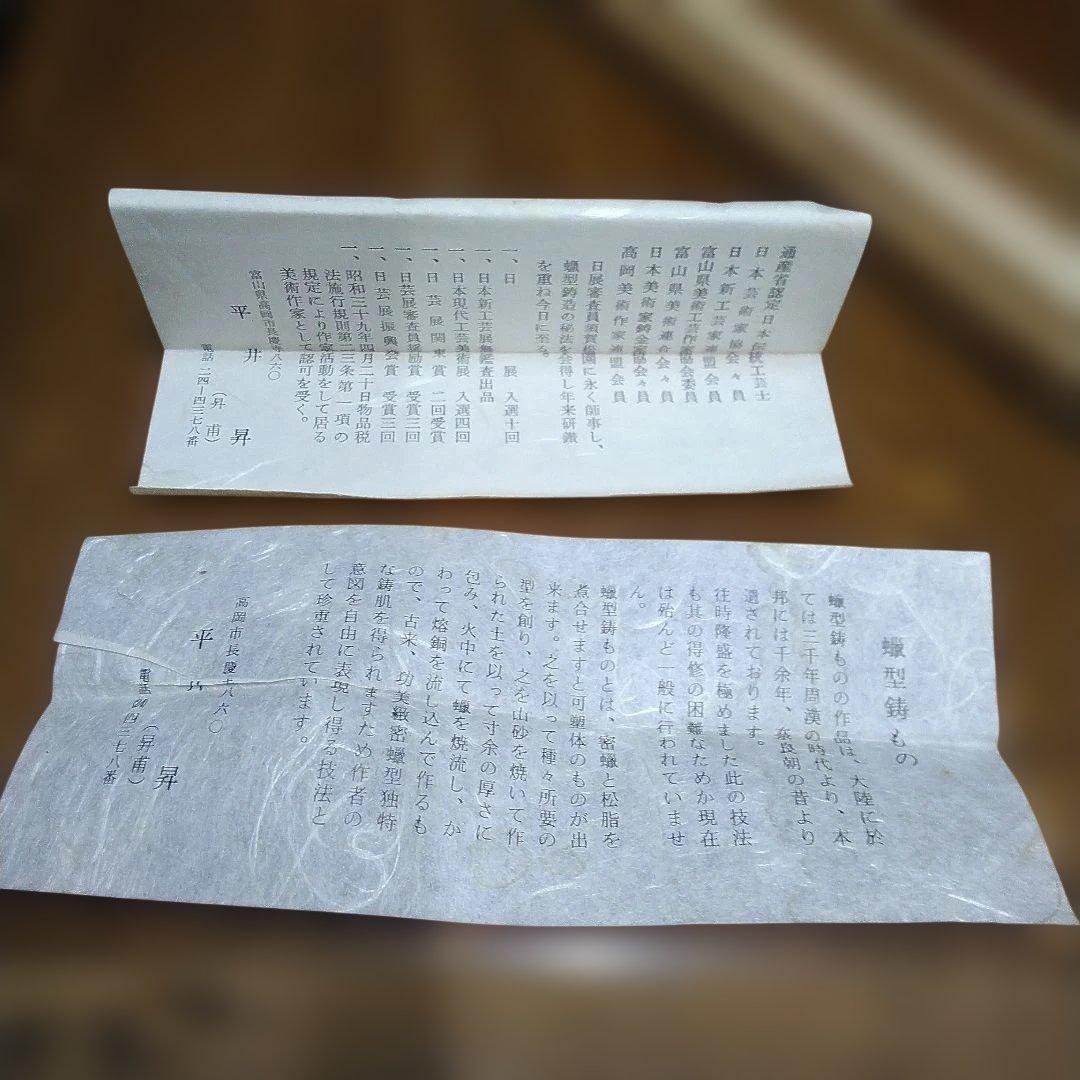 通産省認定日本伝統工芸士
日本芸術家協会々員
日本新工芸家連盟会員
富山県美術工芸作家協会委員
富山県美術連合会会員
日本美術家鋳金家協会々員
高岡美術作家連盟会員
日展審査員須賀 に永く師事し、
蠟型鋳造の秘法を会得し年来研鑽
を重ね今日に至る。
一、日展 入選十回
一、日本新工芸展無鑑査出品
一、日本現代工芸美術展 入選四回
一、日芸展関東賞 二回受賞
一、日芸展審査員奨励賞 受賞三回
一、日芸展振興会賞 受賞三回
一、昭和三十九年四月二十日物品税
法施行規則第二三条第一項の
規定により作家活動をして居る
美術作家として認可を受く。
富山県高岡市長慶寺八六〇
平井昇
(昇甫)
電話 二四-四三七八番
蠟型鋳もの
蠟型鋳ものの作品は、大陸に於
ては三千年周漢の時代より、本
邦には千余年、奈良朝の昔より
遺されております。
往時隆盛を極めました此の技法
も其の得修の困難なためか現在
は殆んど一般に行われていませ
ん。
蠟型鋳ものとは、密蠟と松脂を
煮合せますと可塑体のものが出
来ます。之を以って種々所要の
型を創り、之を山砂を焼いて作
られた土を以って寸余の厚さに
包み、火中にて蠟を焼流し、か
わって熔銅を流し込んで作るも
ので、古来、功美緻密蠟型独特
な鋳肌を得られますため作者の
意図を自由に表現し得る技法と
して珍重されています。
高岡市長慶寺八六〇
平井昇
(昇甫)
電話 四三七八番